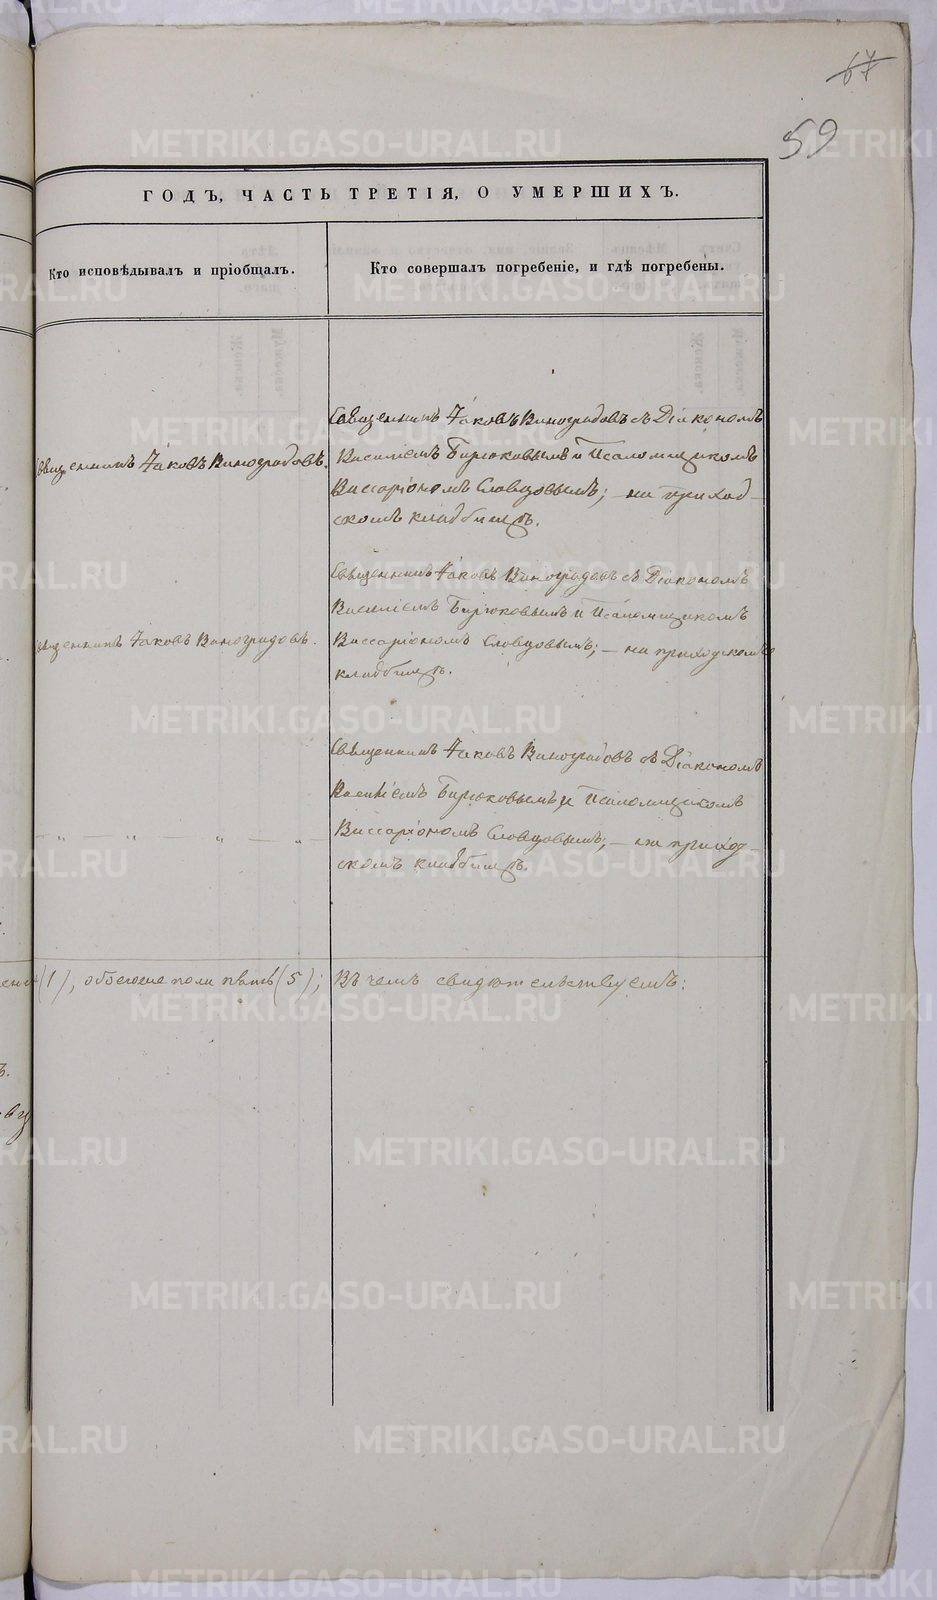 67
59
ГОДЪ, ЧАСТЬ ТРЕТІЯ, О УМЕРШИХЪ.
Кто исповѣдывалъ и пріобщалъ.
Кто совершалъ погребеніе, и гдѣ погребены.
Священникъ Іаковъ Виноградовъ.
Священникъ Іаковъ Виноградовъ съ Діакономъ
Василіемъ Бирюковымъ и Псаломщикомъ
Виссаріономъ Словцовымъ; — на приход-
скомъ кладбищѣ.
Священникъ Іаковъ Виноградовъ.
Священникъ Іаковъ Виноградовъ съ Діакономъ
Василіемъ Бирюковымъ и Псаломщикомъ
Виссаріономъ Словцовымъ; — на приходскомъ
кладбищѣ.
— „ — „ — „ — „ —
Священникъ Іаковъ Виноградовъ съ Діакономъ
Василіемъ Бирюковымъ и Псаломщикомъ
Виссаріономъ Словцовымъ; — на приход-
скомъ кладбищѣ.
(1), обоего пола пять (5); Въ чемъ свидѣтельствуемъ:
METRIKI.GASO-URAL.RU